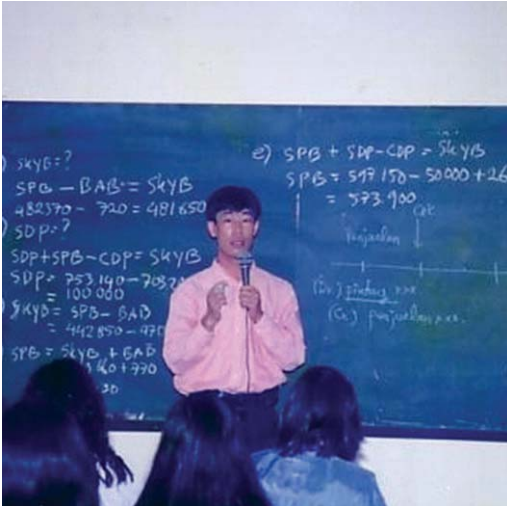 SKYB = ?
SPB - BAB = SKYB
482370 - 720 = 481650
SDP = ?
SDP + SPB - CDP = SKYB
SDP = 753.140 -
= 100 000
SKYB = SPB - BAB
= 442850 - 470
SPB = SKYB + BAB
+ 770
e) SPB + SDP - CDP = SKYB
SPB = 597150 - 50000 + 26
= 573 900
Penjualan
(Dr.) piutang xxx
(Cr.) penjualan xxx.